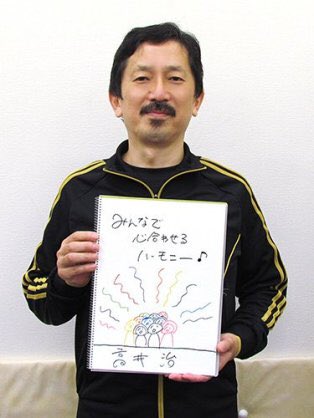 みんなで
心合わせる
ハーモニー♪
高井治